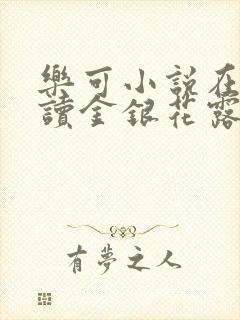 樂可小説在
讀金銀花露
有夢之人